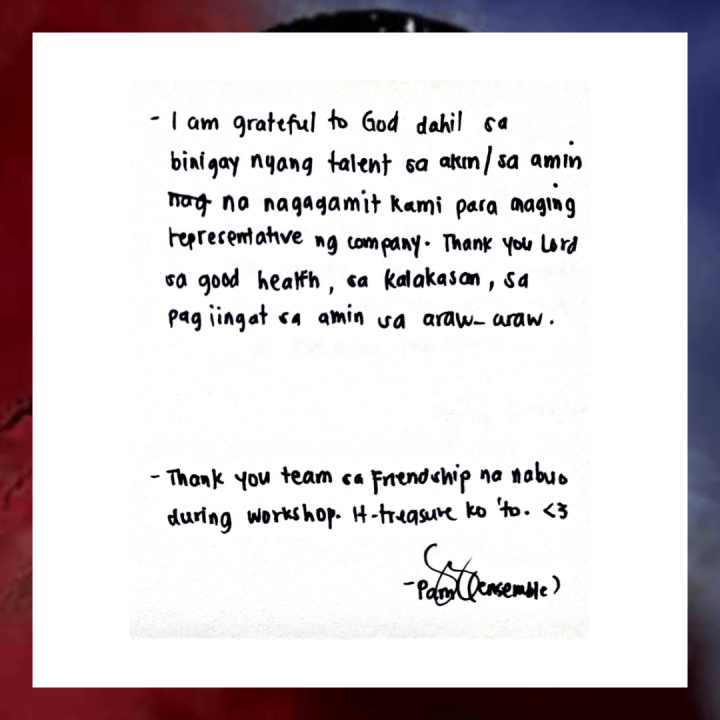 - I am grateful to God dahil sa
binigay nyang talent sa akin/sa amin
nag na nagagamit kami para maging
representative ng company. Thank you Lord
sa good health, sa kalakasan, sa
pag iingat sa amin sa araw-araw.
- Thank you team sa Friendship na nabuo
during workshop. It-treasure ko 'to. <3
- Pam (ensemble)